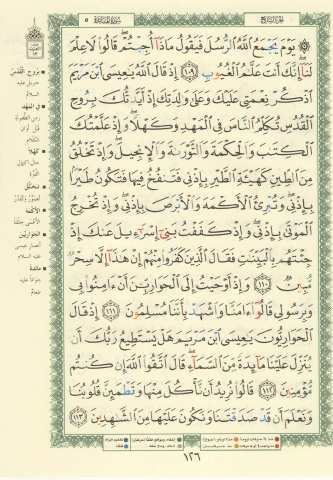 سورة المائدة ٥
الجزء السابع
۞ يَوْمَ يَجْمَعُ ٱللَّهُ ٱلرُّسُلَ فَيَقُولُ مَاذَآ أُجِبْتُمْ ۖ قَالُوا۟ لَا عِلْمَ
لَنَآ ۖ إِنَّكَ أَنتَ عَلَّٰمُ ٱلْغُيُوبِ ١٠٩ إِذْ قَالَ ٱللَّهُ يَٰعِيسَى ٱبْنَ مَرْيَمَ
ٱذْكُرْ نِعْمَتِى عَلَيْكَ وَعَلَىٰ وَٰلِدَتِكَ إِذْ أَيَّدتُّكَ بِرُوحِ
ٱلْقُدُسِ تُكَلِّمُ ٱلنَّاسَ فِى ٱلْمَهْدِ وَكَهْلًا ۖ وَإِذْ عَلَّمْتُكَ
ٱلْكِتَٰبَ وَٱلْحِكْمَةَ وَٱلتَّوْرَىٰةَ وَٱلْإِنجِيلَ ۖ وَإِذْ تَخْلُقُ
مِنَ ٱلطِّينِ كَهَيْـَٔةِ ٱلطَّيْرِ بِإِذْنِى فَتَنفُخُ فِيهَا فَتَكُونُ طَيْرًۢا
بِإِذْنِى ۖ وَتُبْرِئُ ٱلْأَكْمَهَ وَٱلْأَبْرَصَ بِإِذْنِى ۖ وَإِذْ تُخْرِجُ
ٱلْمَوْتَىٰ بِإِذْنِى ۖ وَإِذْ كَفَفْتُ بَنِىٓ إِسْرَٰٓءِيلَ عَنكَ إِذْ
جِئْتَهُم بِٱلْبَيِّنَٰتِ فَقَالَ ٱلَّذِينَ كَفَرُوا۟ مِنْهُمْ إِنْ هَٰذَآ إِلَّا سِحْرٌ
مُّبِينٌ ١١٠ وَإِذْ أَوْحَيْتُ إِلَى ٱلْحَوَارِيِّۦنَ أَنْ ءَامِنُوا۟ بِى
وَبِرَسُولِى قَالُوٓا۟ ءَامَنَّا وَٱشْهَدْ بِأَنَّنَا مُسْلِمُونَ ١١١ إِذْ قَالَ
ٱلْحَوَارِيُّونَ يَٰعِيسَى ٱبْنَ مَرْيَمَ هَلْ يَسْتَطِيعُ رَبُّكَ أَن
يُنَزِّلَ عَلَيْنَا مَآئِدَةً مِّنَ ٱلسَّمَآءِ ۖ قَالَ ٱتَّقُوا۟ ٱللَّهَ إِن كُنتُم
مُّؤْمِنِينَ ١١٢ قَالُوا۟ نُرِيدُ أَن نَّأْكُلَ مِنْهَا وَتَطْمَئِنَّ قُلُوبُنَا
وَنَعْلَمَ أَن قَدْ صَدَقْتَنَا وَنَكُونَ عَلَيْهَا مِنَ ٱلشَّٰهِدِينَ ١١٣
بِرُوحِ الْقُدُسِ
جبريل عليه
السلام
في المهد
زمن الطفولة
قبل أوان
الكلام
كهلاً
حال اكتمال
القوة
تخلق
تصور وتقدر
الأكمه
الأعمى خلقة
الحواريين
أنصار عيسى
عليه السلام
مائدة
خواناً عليه
طعام
١٢٦